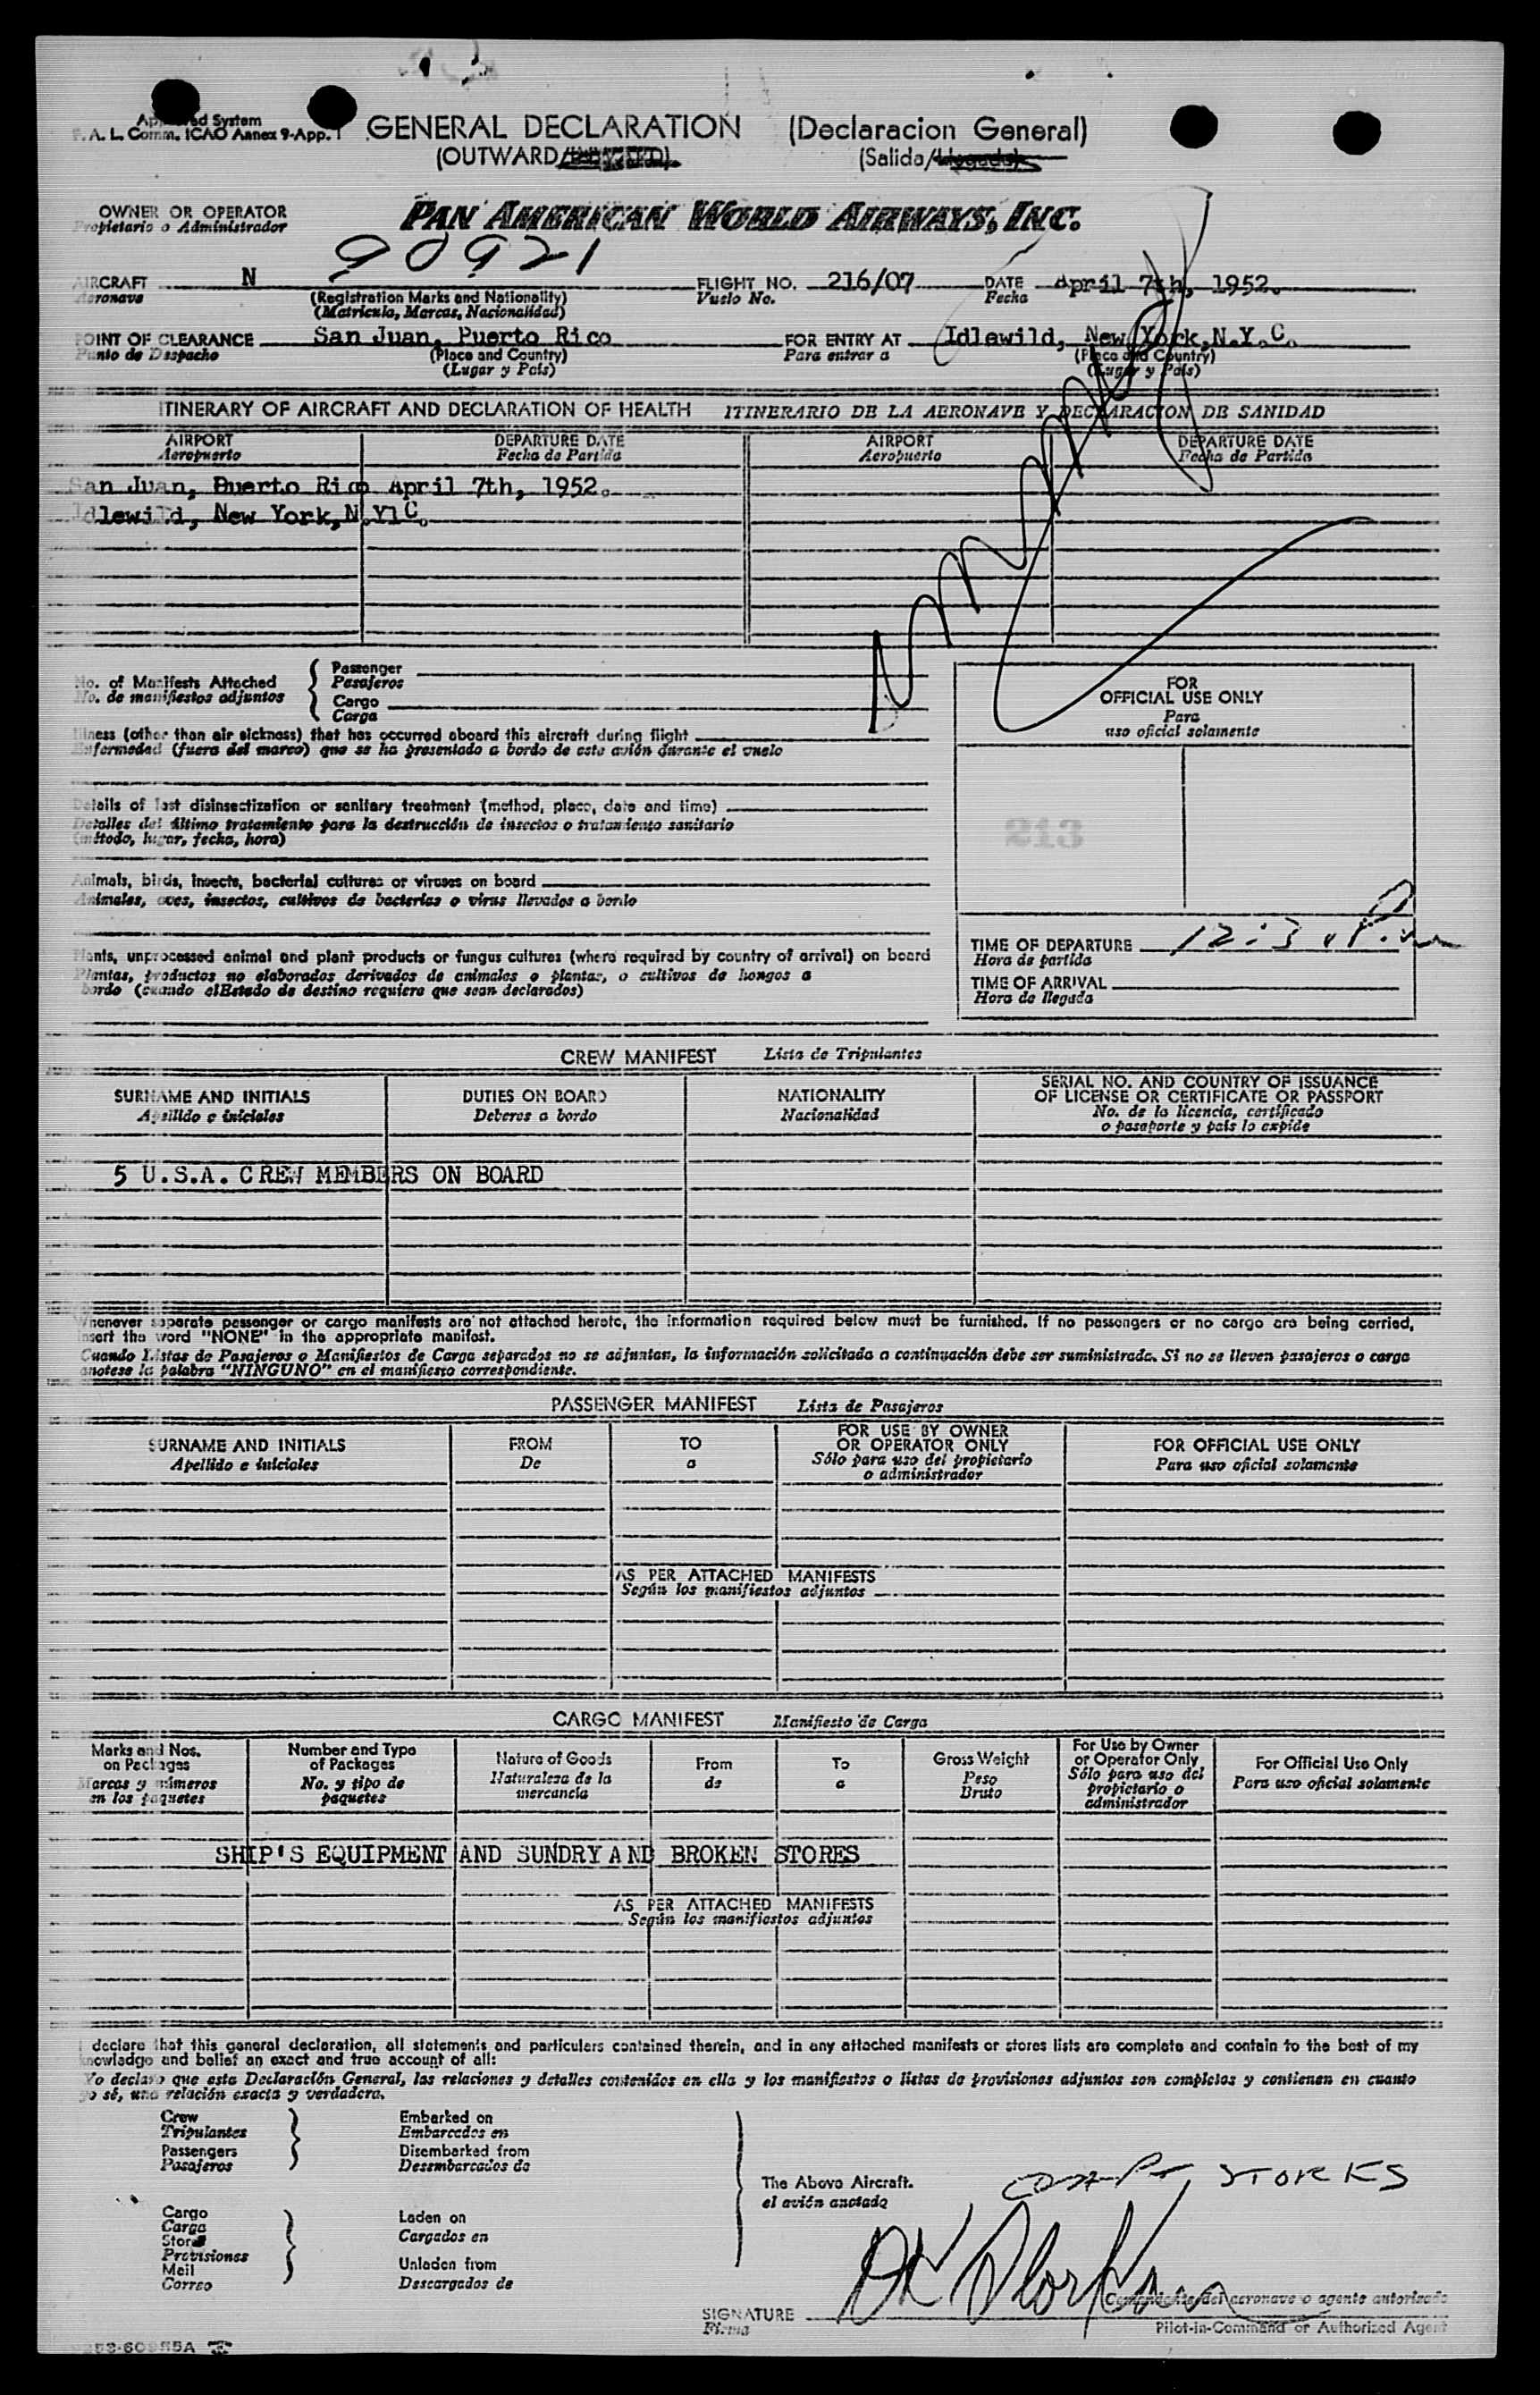 System
F. A. L. Comm. ICAO Annex 9-App. 1
GENERAL DECLARATION (Declaracion General)
(OUTWARD/ (Salida/
OWNER OR OPERATOR PAN AMERICAN WORLD AIRWAYS, INC.
Propietario o Administrador
AIRCRAFT N 90921 FLIGHT NO. 216/07 DATE April 7th, 1952.
Aeronave (Registration Marks and Nationality) Vuelo No. Fecha
(Matricula, Marcas, Nacionalidad)
POINT OF CLEARANCE San Juan, Puerto Rico FOR ENTRY AT Idlewild, New York,N.Y.C.
Punto de Despacho (Place and Country) Para entrar a (Place and Country)
(Lugar y País) (Lugar y País)
ITINERARY OF AIRCRAFT AND DECLARATION OF HEALTH ITINERARIO DE LA AERONAVE Y DECLARACION DE SANIDAD
AIRPORT DEPARTURE DATE AIRPORT DEPARTURE DATE
Aeropuerto Fecha de Partida Aeropuerto Fecha de Partida
San Juan, Puerto Rico April 7th, 1952.
Idlewild, New York,N.Y1C.
No. of Manifests Attached
No. de manifiestos adjuntos
Passenger
Pasajeros
Cargo
Carga
FOR
OFFICIAL USE ONLY
Para
uso oficial solamente
Illness (other than air sickness) that has occurred aboard this aircraft during flight
Enfermedad (fuera del mareo) que se ha presentado a bordo de este avión durante el vuelo
Details of last disinsectization or sanitary treatment (method, place, date and time)
Detalles del último tratamiento para la destrucción de insectos o tratamiento sanitario
(método, lugar, fecha, hora)
213
Animals, birds, insects, bacterial cultures or viruses on board
Animales, aves, insectos, cultivos de bacterias o virus llevados a bordo
Plants, unprocessed animal and plant products or fungus cultures (where required by country of arrival) on board
Plantas, productos no elaborados derivados de animales o plantas, o cultivos de hongos a
bordo (cuando elEstado de destino requiera que sean declarados)
TIME OF DEPARTURE
Hora de partida
TIME OF ARRIVAL
Hora de llegada
CREW MANIFEST Lista de Tripulantes
SURNAME AND INITIALS DUTIES ON BOARD NATIONALITY SERIAL NO. AND COUNTRY OF ISSUANCE
OF LICENSE OR CERTIFICATE OR PASSPORT
Apellido e iniciales Deberes a bordo Nacionalidad No. de la licencia, certificado
o pasaporte y país lo expide
5 U.S.A. CREW MEMBERS ON BOARD
Whenever separate passenger or cargo manifests are not attached hereto, the information required below must be furnished. If no passengers or no cargo are being carried,
insert the word "NONE" in the appropriate manifest.
Cuando Listas de Pasajeros o Manifiestos de Carga separados no se adjuntan, la información solicitada a continuación debe ser suministrada. Si no se lleven pasajeros o carga
anotese la palabra "NINGUNO" en el manifiesto correspondiente.
PASSENGER MANIFEST Lista de Pasajeros
SURNAME AND INITIALS FROM TO FOR USE BY OWNER
OR OPERATOR ONLY FOR OFFICIAL USE ONLY
Apellido e iniciales De a Sólo para uso del propietario
o administrador Para uso oficial solamente
AS PER ATTACHED MANIFESTS
Según los manifiestos adjuntos
CARGO MANIFEST Manifiesto de Carga
Marks and Nos.
on Packages
Marcas y números
en los paquetes
Number and Type
of Packages
No. y tipo de
paquetes
Nature of Goods
Naturaleza de la
mercancía
From
de
To
a
Gross Weight
Peso
Bruto
For Use by Owner
or Operator Only
Sólo para uso del
propietario o
administrador
For Official Use Only
Para uso oficial solamente
SHIP'S EQUIPMENT AND SUNDRY AND BROKEN STORES
AS PER ATTACHED MANIFESTS
Según los manifiestos adjuntos
I declare that this general declaration, all statements and particulars contained therein, and in any attached manifests or stores lists are complete and contain to the best of my
knowledge and belief an exact and true account of all:
Yo declaro que esta Declaración General, las relaciones y detalles contenidos en ella y los manifiestos o listas de provisiones adjuntos son completos y contienen en cuanto
yo sé, una relación exacta y verdadera.
Crew
Tripulantes
Passengers
Pasajeros
Embarked on
Embarcados en
Disembarked from
Desembarcados de
The Above Aircraft.
el avión anotado
Cargo
Carga
Stores
Provisiones
Mail
Correo
Laden on
Cargados en
Unladen from
Descargados de
SIGNATURE
Firma
del aeronave o agente autorizado
Pilot-in-Command or Authorized Agent